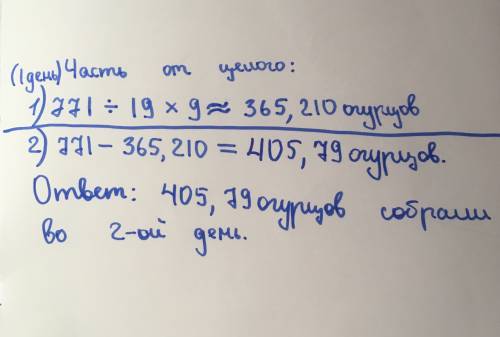 (1 день) Часть от целого:
1) 771 ÷ 19 × 9 ≈ 365,210 огурцов
2) 771 - 365,210 = 405,79 огурцов.
Ответ: 405,79 огурцов собрали
во 2-ой день.